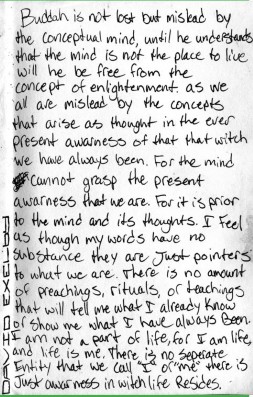 Buddah is not lost but mislead by
the conceptual mind, until he understands
that the mind is not the place to live
will he be free from the
concept of enlightenment. as we
all are mislead by the concepts
that arise as thought in the ever
present awarness of that that witch
we have always been. For the mind
cannot grasp the present
awarness that we are. For it is prior
to the mind and its thoughts. I Feel
as though my words have no
substance they are Just pointers
to what we are. There is no amount
of preachings, rituals, or teachings
that will tell me what I already know
or show me what I have always Been.
I am not a part of life, for I am life,
and life is me. There is no seperate
Entity that we call "I" or "me" there is
Just awarness in witch life Resides.
DAVID EXELBY